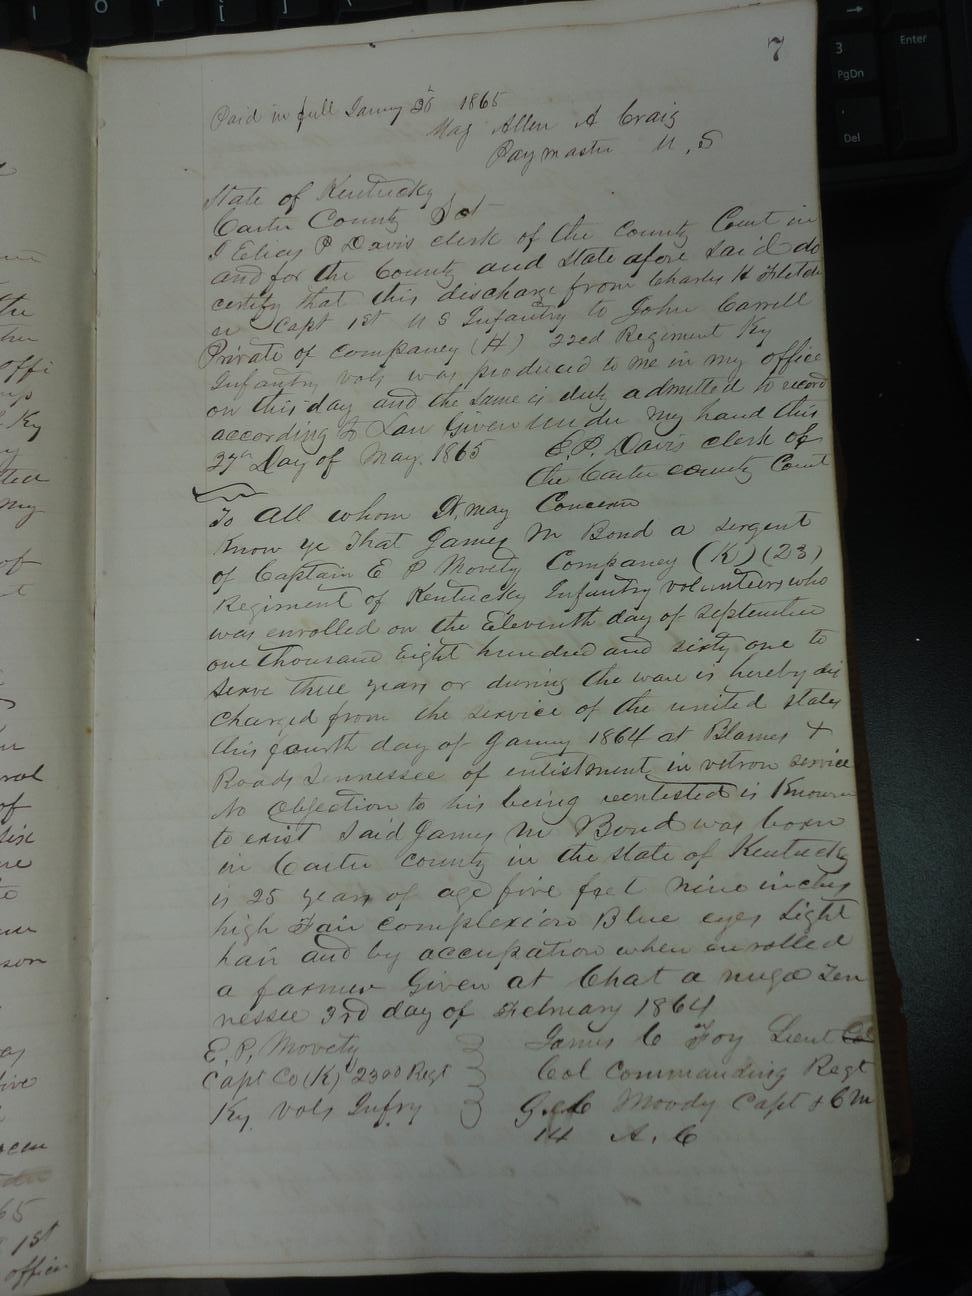 7
Paid in full Janry 30th 1865
Maj Allen A Craig
Paymaster U, S
State of Kentucky
Carter County Sct
I Elias P Davis clerk of the County Court in
and for the County and State afore said do
certify that this discharge from Charles H Fletch
er Capt 1st U S Infantry to John Carrell
Private of compancy (H) 22ed Regiment Ky
Infantry vols was produced to me in my office
on this day and the same is duly admitted to record
according to Law Given under my hand this
27th Day of May. 1865 E. P. Davis clerk of
the Carter county Court
To all whom It, may Concern
Know ye That James M Bond a sergent
of Captain E P Movety Compancy (K) (23)
Regiment of Kentucky Infantry volunteers who
was enrolled on the Eleventh day of September
one thousand Eight hundred and sixty one to
serve three years or during the ware is hereby dis
charged from the service of the united states
this fourth day of Janry 1864 at Blames +
Roads Tennessee of enlistment in vetron service
No objection to his being reentisted is Known
to exist Said James M Bond was born
in Carter County in the state of Kentucky
is 25 years of age five feet nine inches
high Fair complexion Blue eyes Light
hair and by accupation when enrolled
a farmer Given at Chat a nuga Ten
nessee 3rd day of February 1864
E, P, Movety James C Foy Lieut
Capt Co (K) 23rd Regt Col Commanding Regt
Ky vols Infry Moody Capt & C M
14 A. C
3
PgDn
Enter
Del